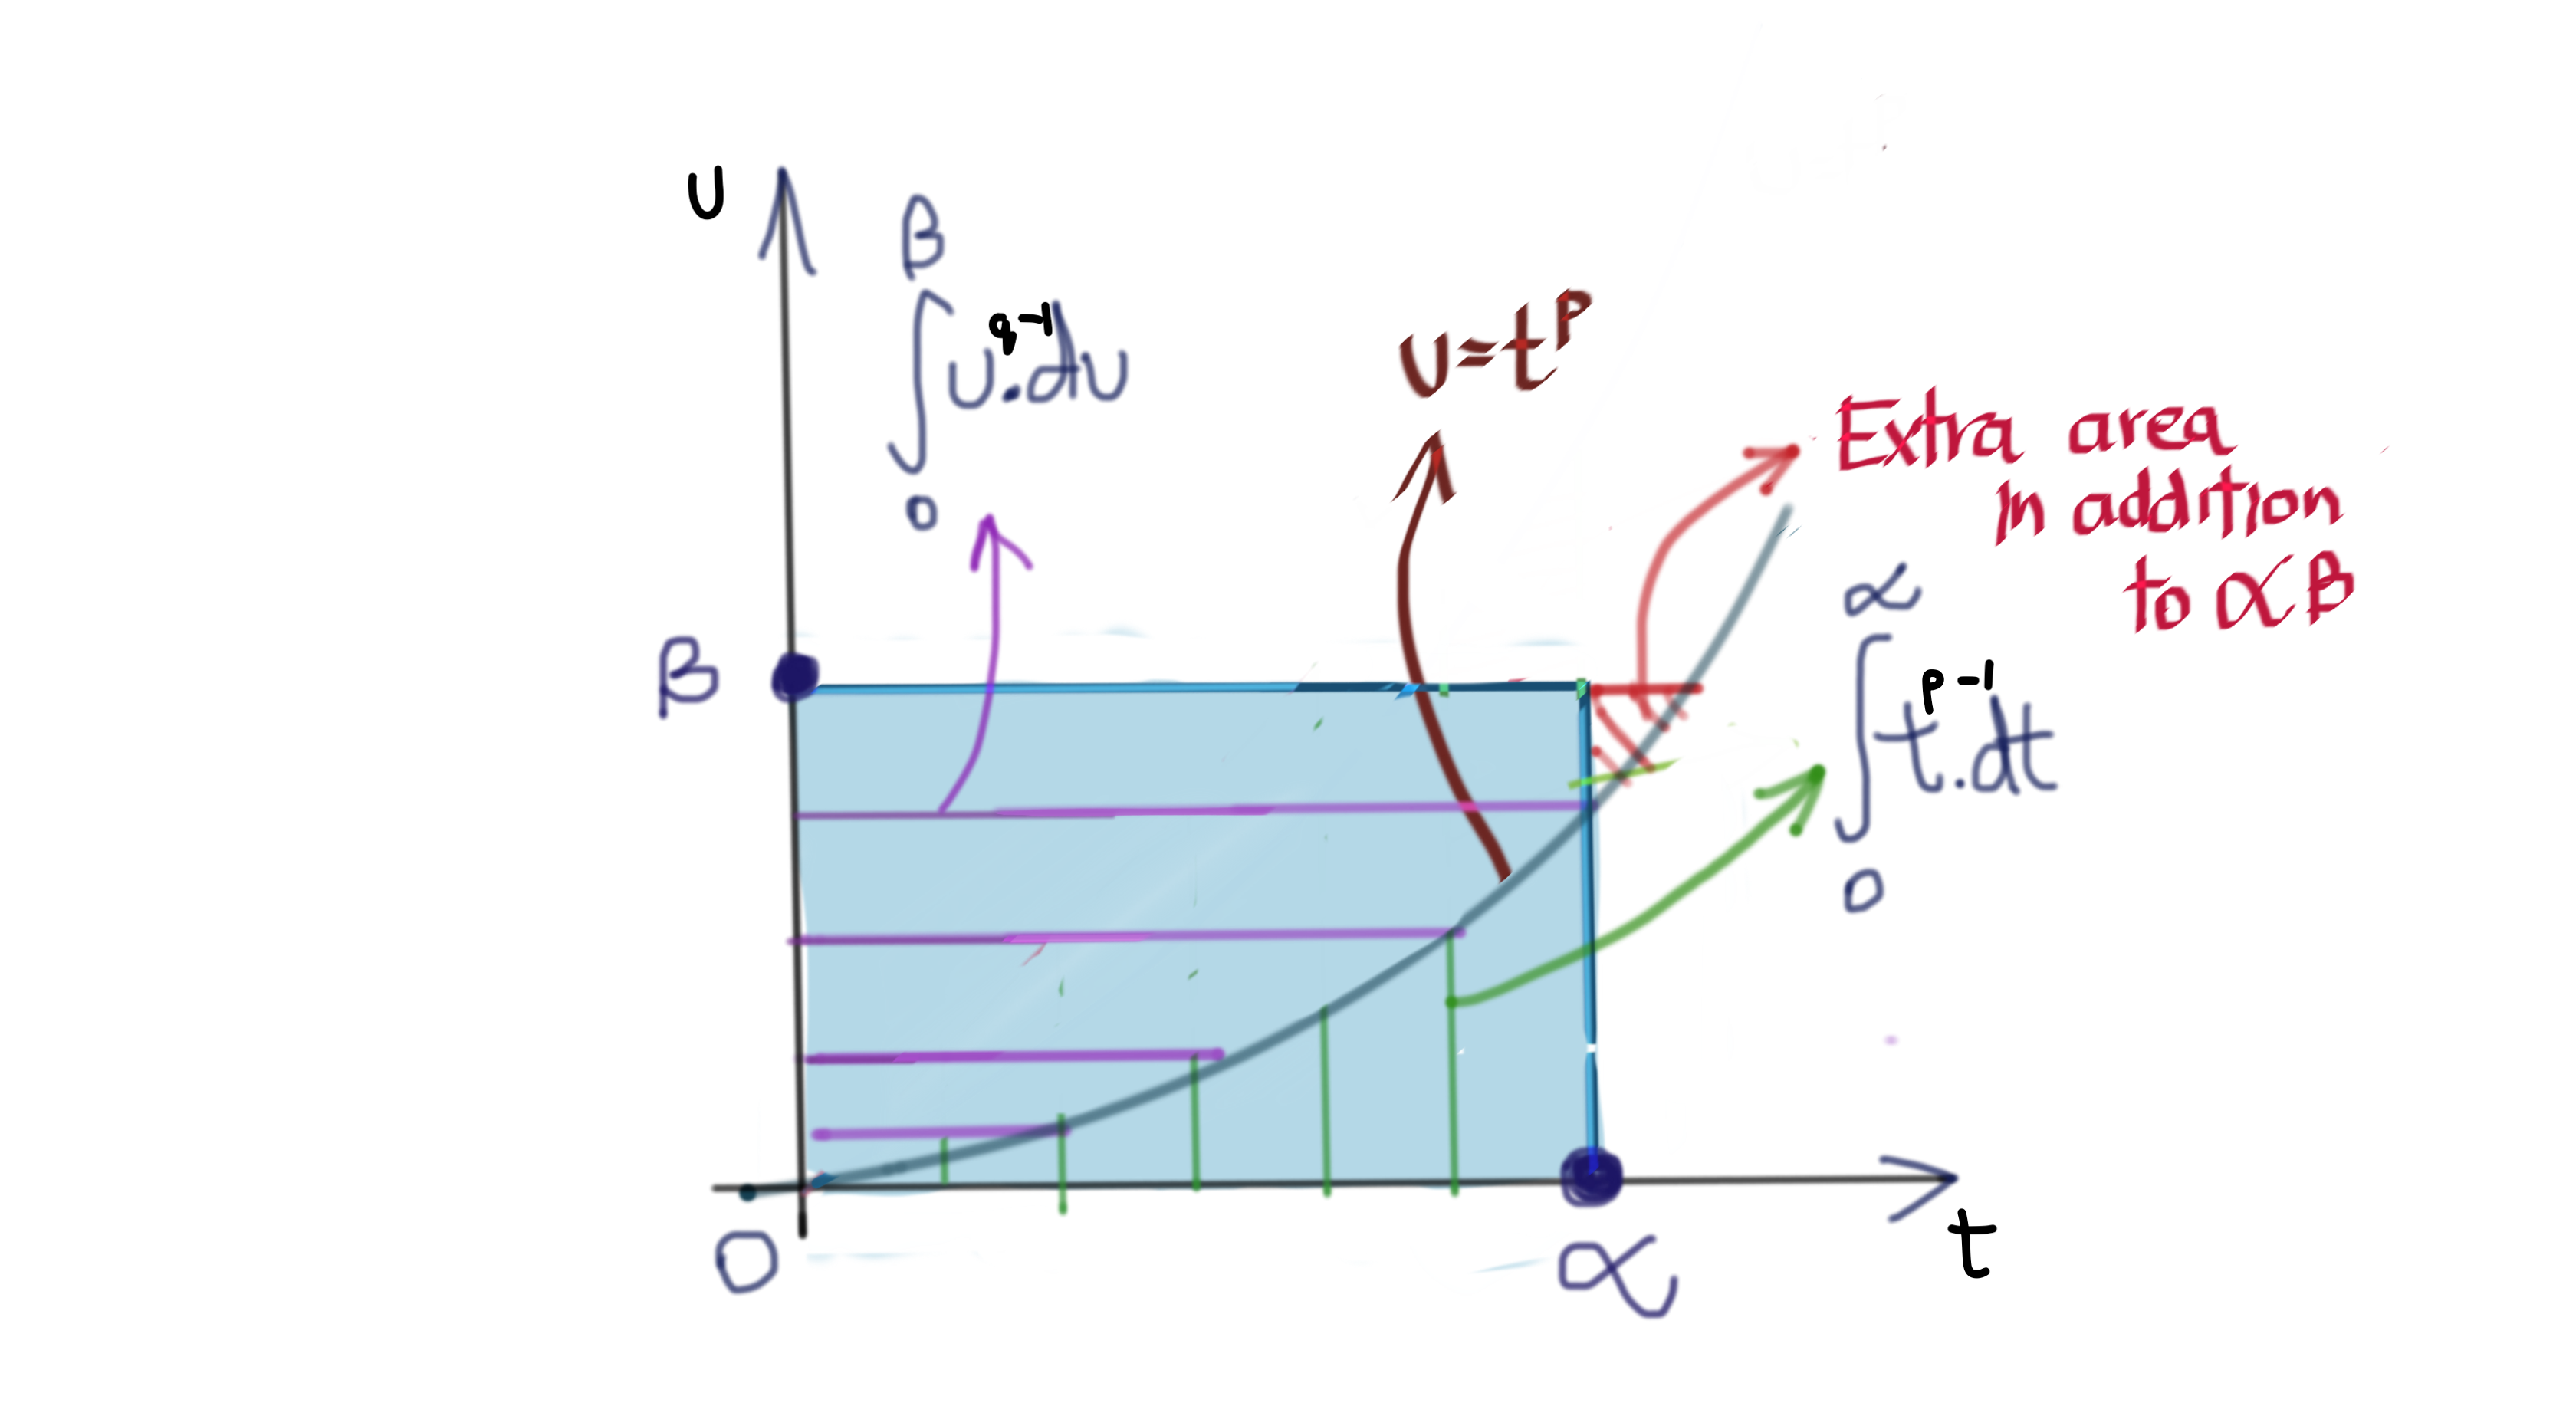 U
β
∫ u^{q-1}.du
0
U=t^p
Extra area
in addition
to αβ
α
∫ t^{p-1}.dt
0
β
0
α
t